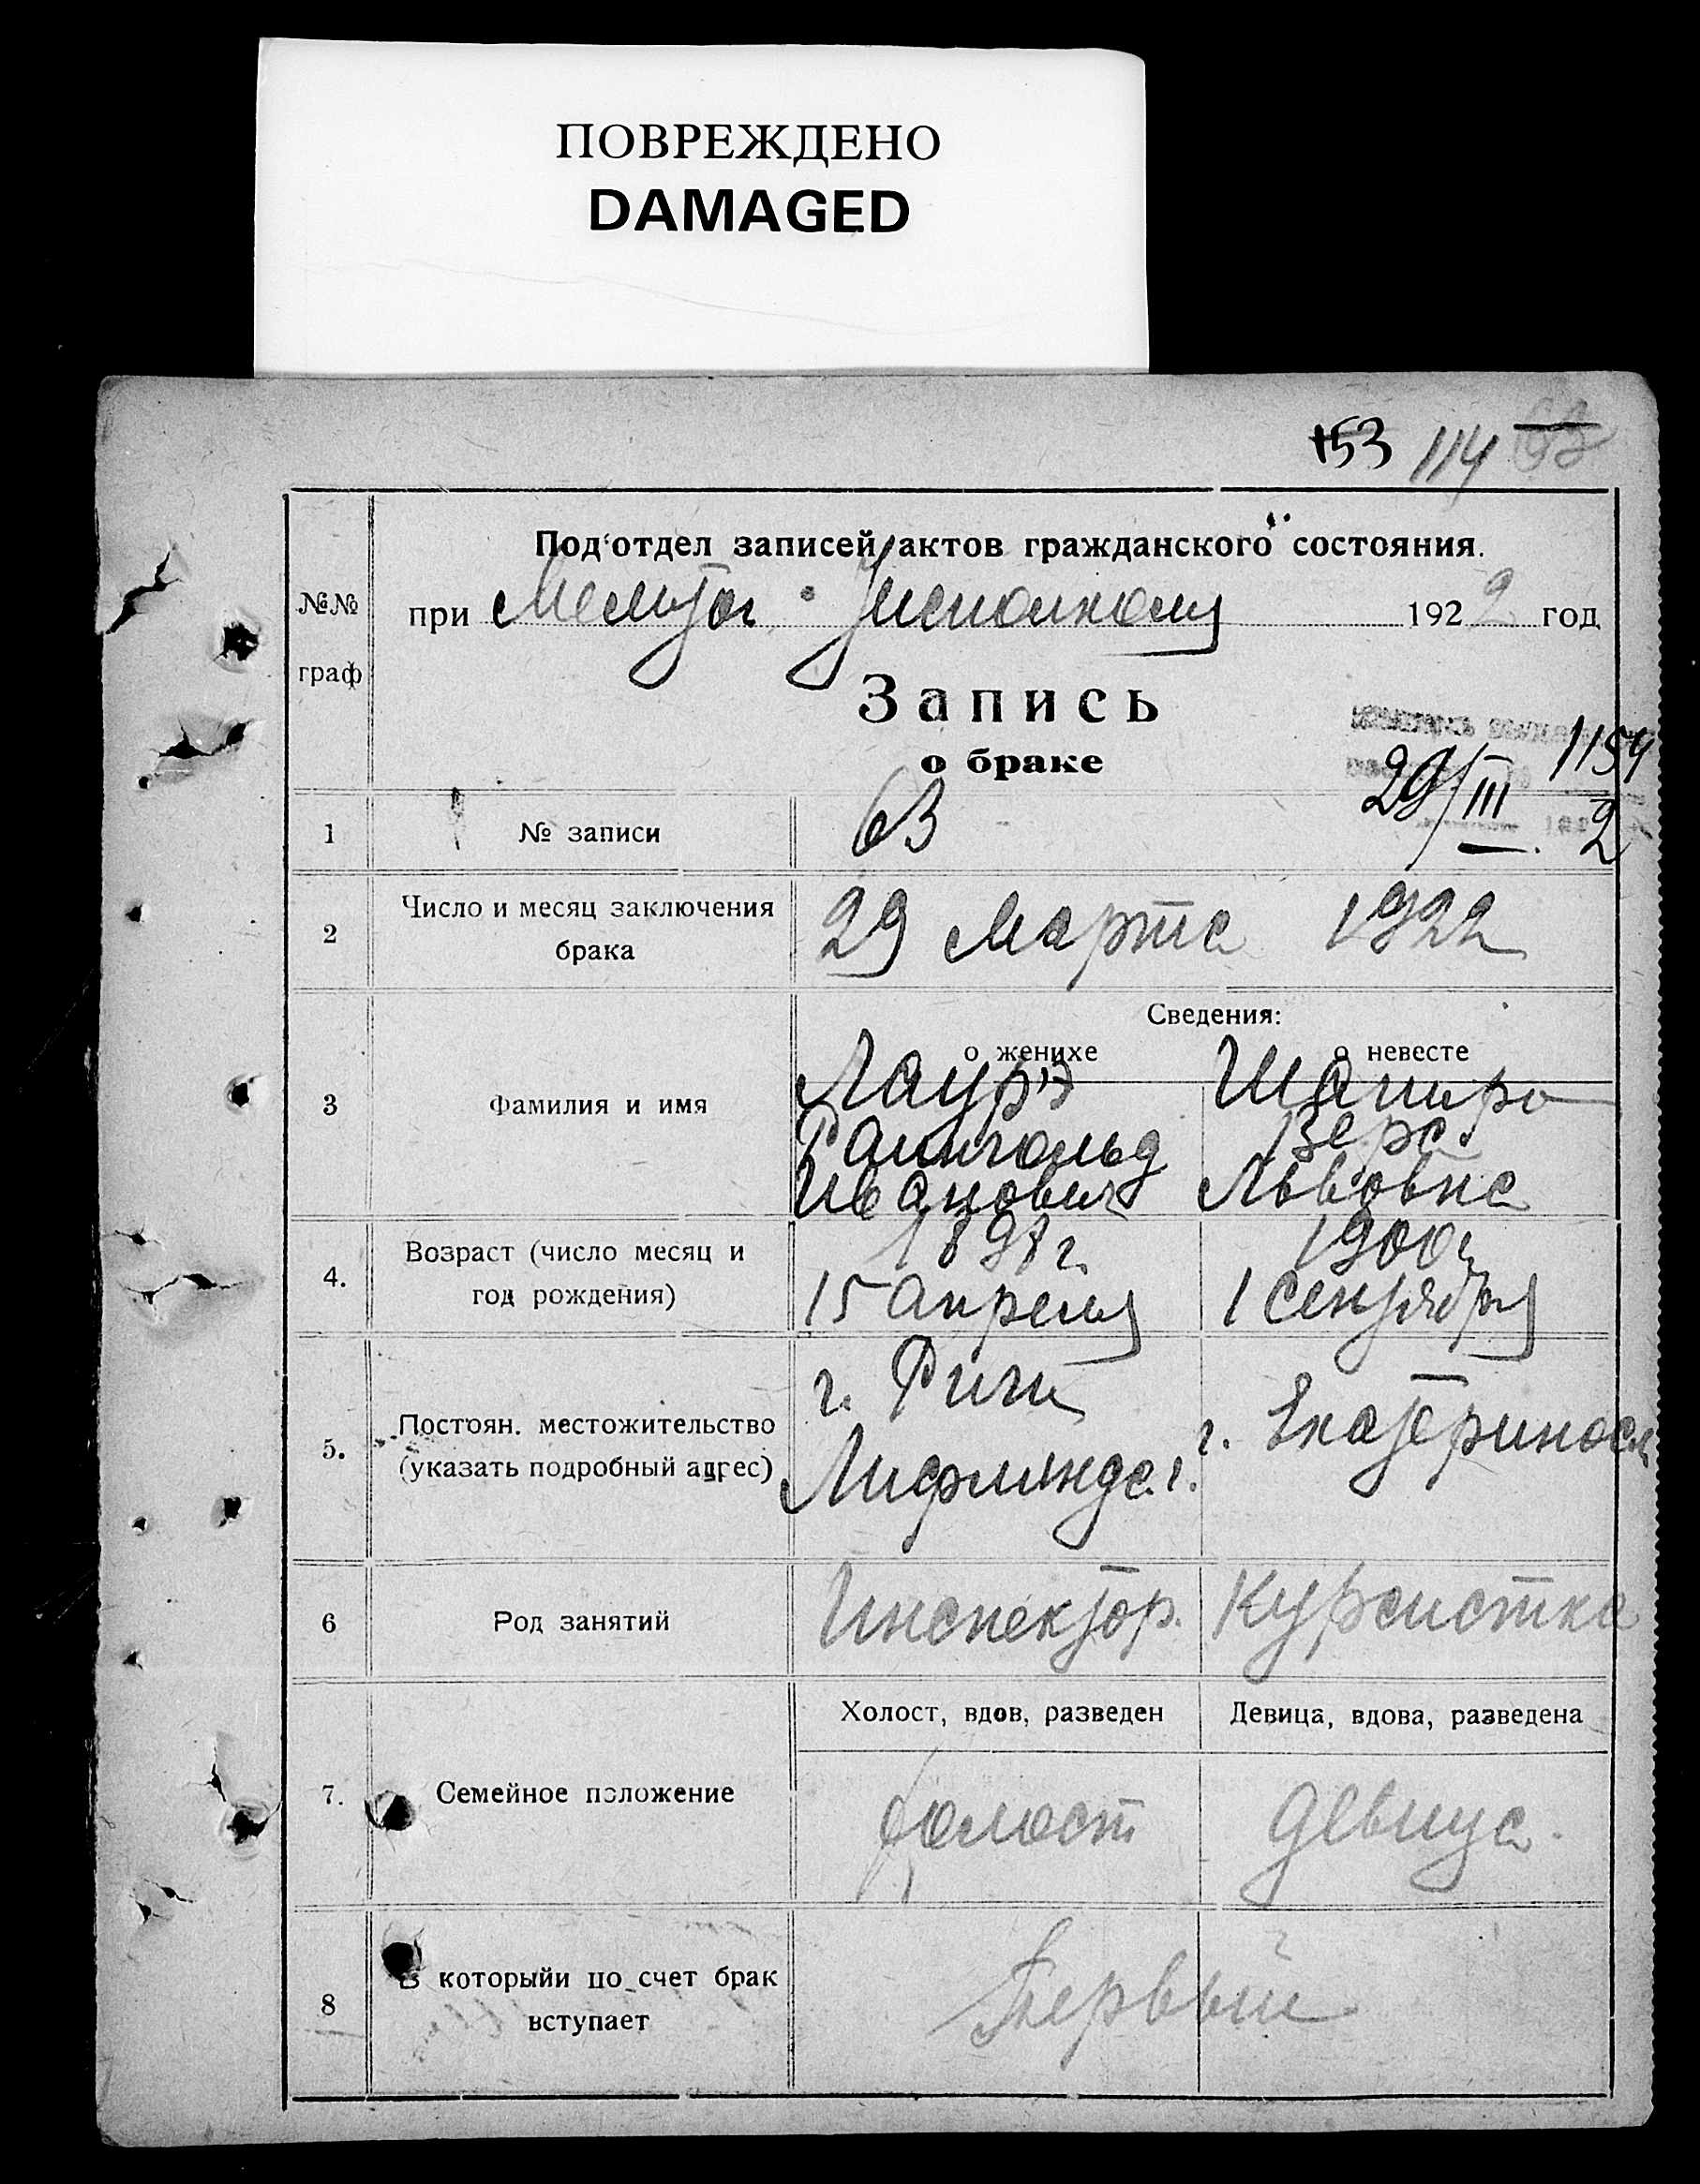 ПОВРЕЖДЕНО
DAMAGED
153 114 63
Под'отдел записей актов гражданского состояния.
№№ граф
при Исполкому 1922 год
Запись
о браке
1154
29/III 2
1 № записи 63
2 Число и месяц заключения брака 29 Марта 1922
Сведения:
о женихе о невесте
3 Фамилия и имя
Лаурэ Шапиро
Раингольд Вера
Иванович Львовна
4. Возраст (число месяц и год рождения)
1897 г. 1900 г.
15 апреля 1 сентября
5. Постоян. местожительство (указать подробный адрес)
г. Риги г. Екатериносл
Лифляндс. г.
6 Род занятий Инспектор. Курсистка
Холост, вдов, разведен Девица, вдова, разведена
7. Семейное положение холост девица.
8 В которыйи по счет брак вступает Первый